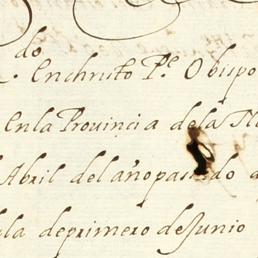 do
Enchristo Pe. Obispo
Enla Provincia dela
Abril del año pasado
deprimero de Junio